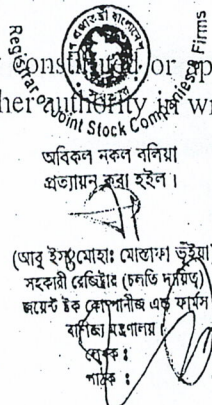 Registrar of Joint Stock Companies & Firms
constituted or
her authority in wr
অবিকল নকল বলিয়া
প্রত্যায়ন করা হইল।
(আবু ইসা মোহাঃ মোস্তাফা ভূঁইয়া)
সহকারী রেজিষ্ট্রার (চলতি দায়িত্ব)
জয়েন্ট ষ্টক কোম্পানীজ এন্ড ফার্মস
বাণিজ্য মন্ত্রণালয়।
পাঠক :